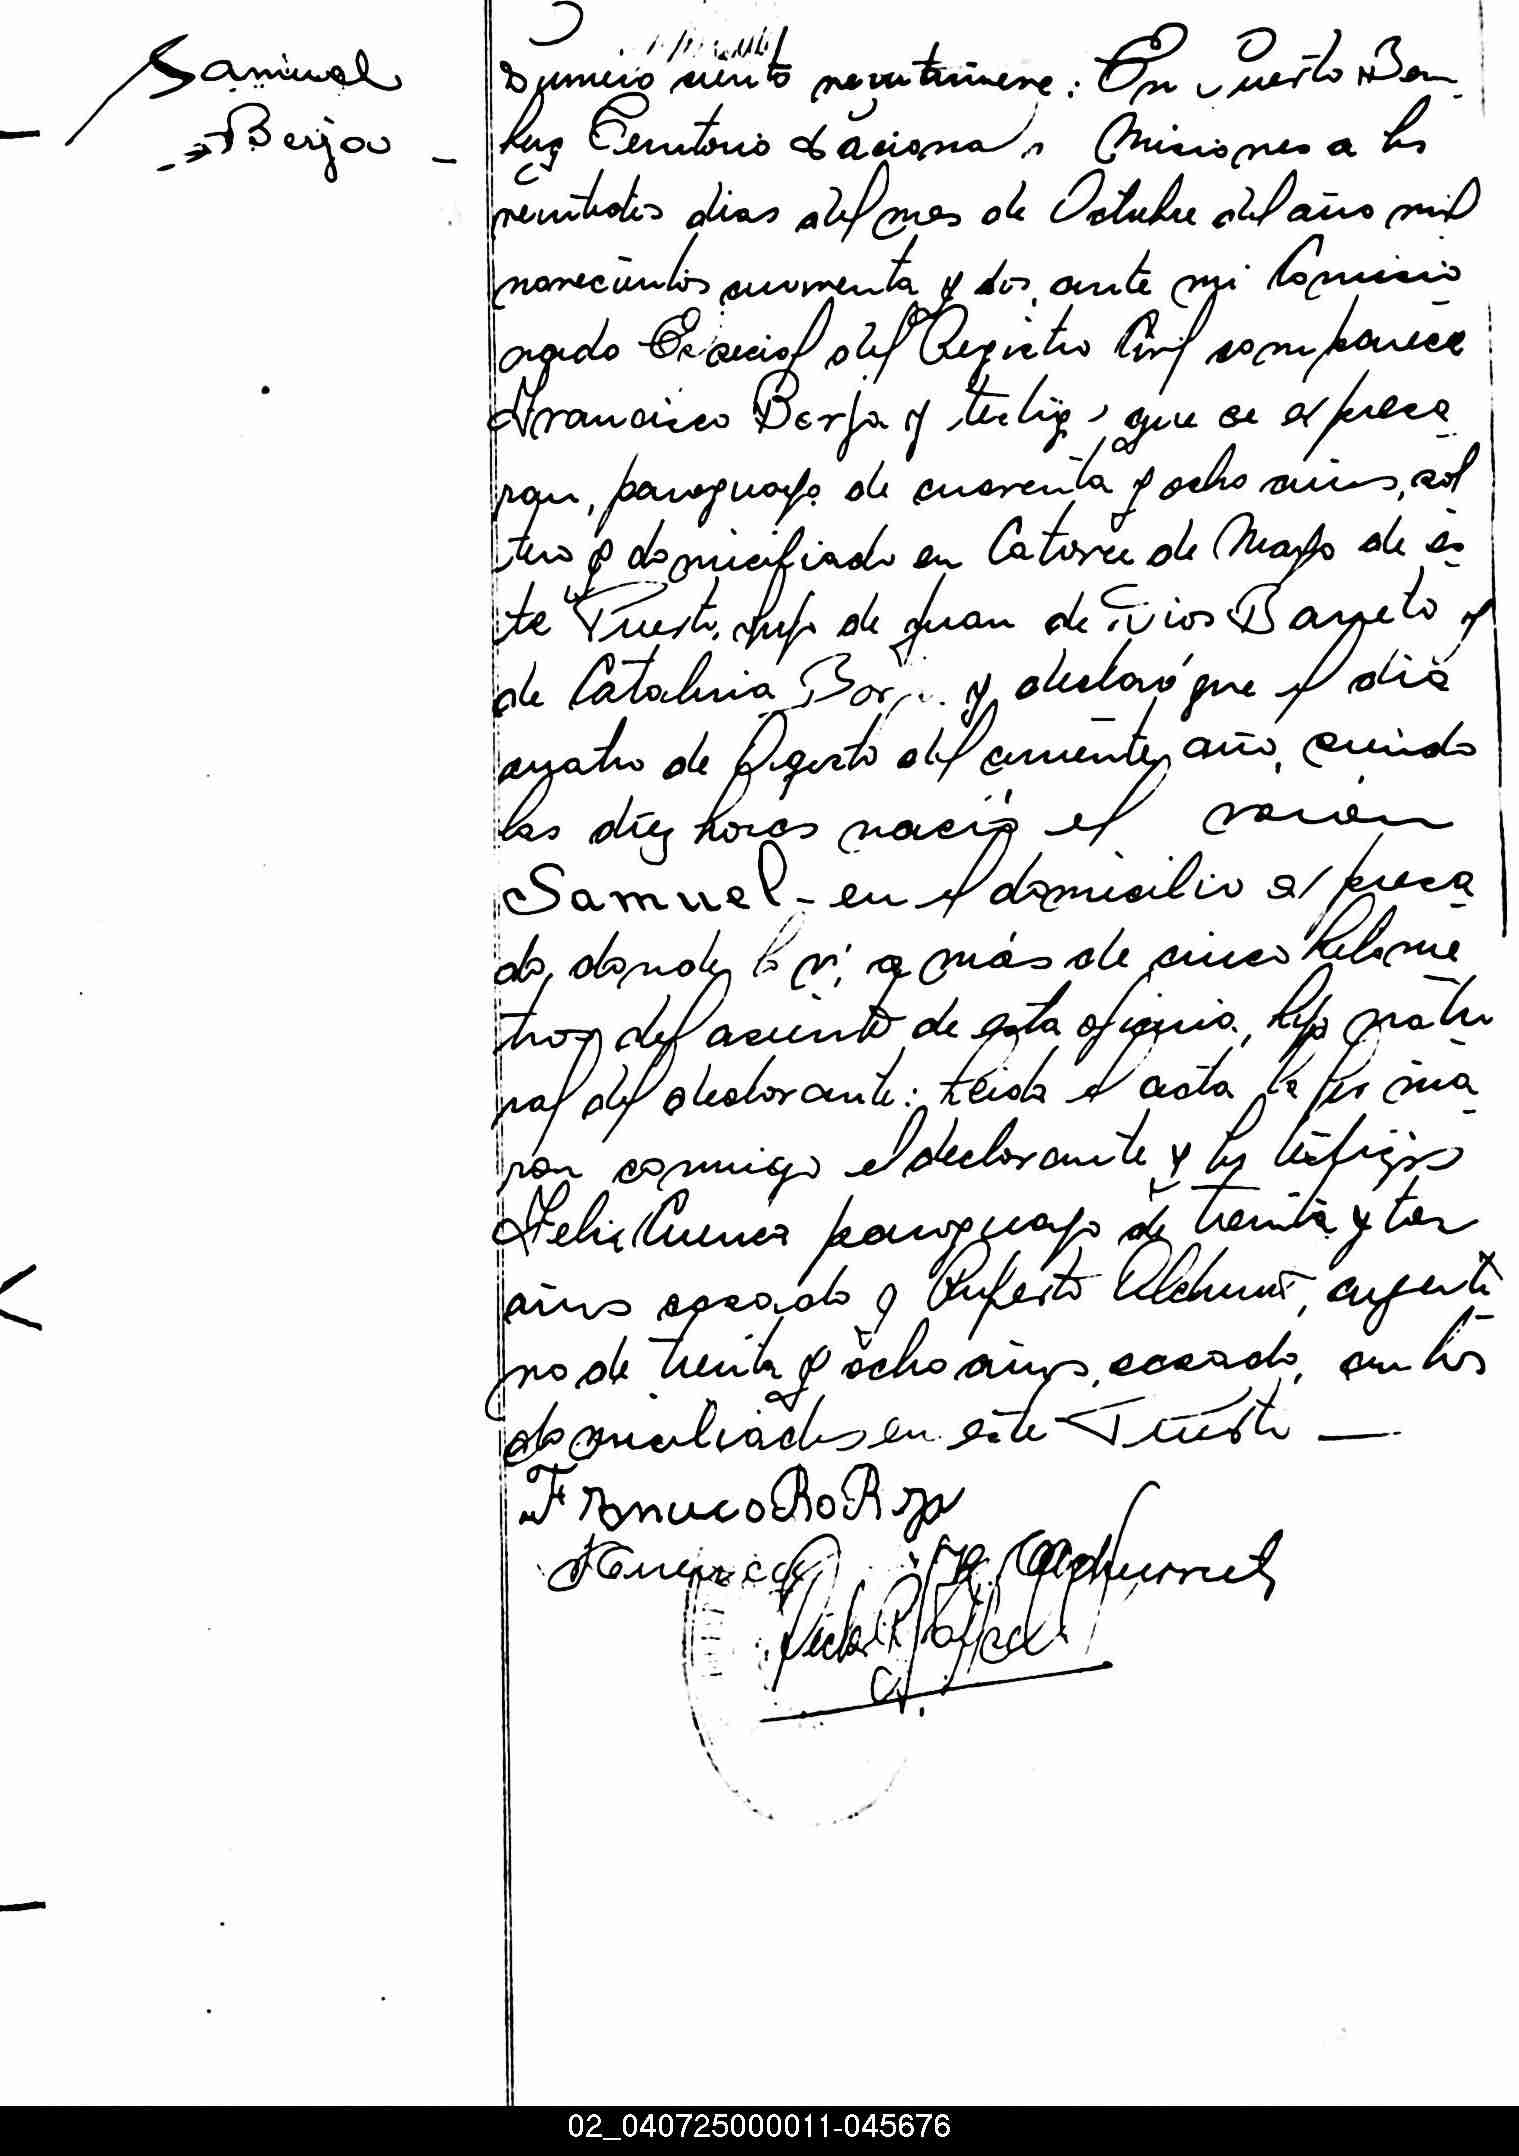 Samuel
Borja
Número ciento : En Puerto Ben
Territorio Naciona Misiones a los
veintidós dias del mes de Octubre del año mil
novecientos cuarenta y dos, ante mi Comisio
nado Especial del Registro Civil comparece
Francisco Borja y testigos que se expresa
ran, paraguayo de cuarenta y ocho años, sol
tero y domiciliado en Catorce de Mayo de es
te Puerto, hijo de Juan de Dios Barreto y
de Catalina Borja y declaró que el dia
cuatro de Agosto del corriente año, siendo
las diez horas nació el varón
Samuel - en el domicilio expresa
do, donde lo ví, a más de cinco kilome
tros del asiento de esta oficina, hijo natu
ral del declarante: Leida el acta la firma
ron conmigo el declarante y los testigos
Felix Cuenca paraguayo de treinta y tres
años casado y Ruperto, argenti
no de treinta y ocho años, casado, ambos
domiciliados en este Puerto —
Francisco BoRja
F Cuenca
02_040725000011-045676